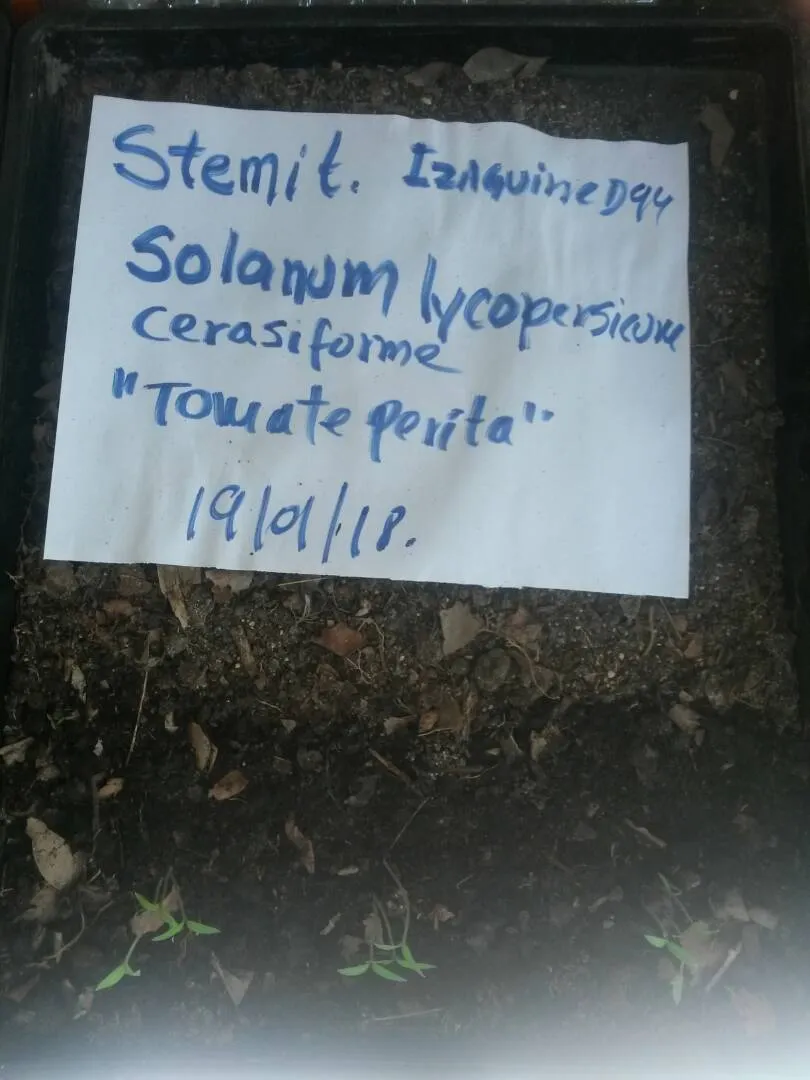 Stemit. IzAguirre D94
Solanum lycopersicum
cerasiforme
"Tomate perita".
19/01/18.